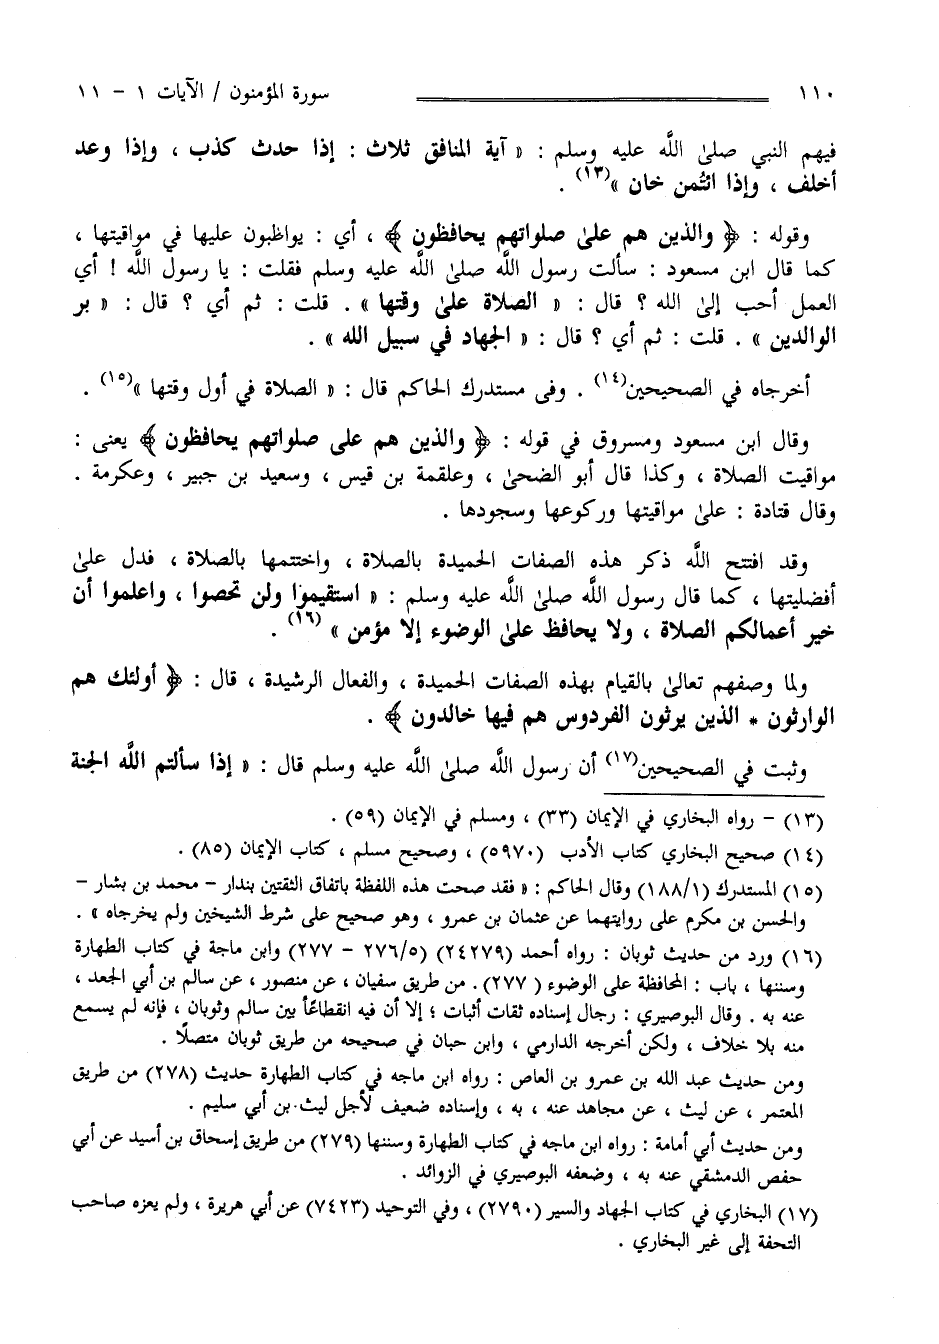 ١١٠ سورة المؤمنون / الآيات ١ - ١١
فيهم النبي صلىٰ اللَّه عليه وسلم : « آية المنافق ثلاث : إذا حدث كذب ، وإذا وعد
أخلف ، وإذا ائتُمن خان »(١٣) .
وقوله : ﴿ والذين هم علىٰ صلواتهم يحافظون ﴾ ، أي : يواظبون عليها في مواقيتها ،
كما قال ابن مسعود : سألت رسول اللَّه صلىٰ اللَّه عليه وسلم فقلت : يا رسول اللَّه ! أي
العمل أحب إلىٰ الله ؟ قال : « الصلاة علىٰ وقتها » . قلت : ثم أي ؟ قال : « بر
الوالدين » . قلت : ثم أي ؟ قال : « الجهاد في سبيل الله » .
أخرجاه في الصحيحين(١٤) . وفى مستدرك الحاكم قال : « الصلاة في أول وقتها »(١٥) .
وقال ابن مسعود ومسروق في قوله : ﴿ والذين هم على صلواتهم يحافظون ﴾ يعنى :
مواقيت الصلاة ، وكذا قال أبو الضحىٰ ، وعلقمة بن قيس ، وسعيد بن جبير ، وعكرمة .
وقال قتادة : علىٰ مواقيتها وركوعها وسجودها .
وقد افتتح اللَّه ذكر هذه الصفات الحميدة بالصلاة ، واختتمها بالصلاة ، فدل علىٰ
أفضليتها ، كما قال رسول اللَّه صلىٰ اللَّه عليه وسلم : « استقيموا ولن تحصوا ، واعلموا أن
خير أعمالكم الصلاة ، ولا يحافظ علىٰ الوضوء إلا مؤمن » (١٦) .
ولما وصفهم تعالىٰ بالقيام بهذه الصفات الحميدة ، والفعال الرشيدة ، قال : ﴿ أولئك هم
الوارثون * الذين يرثون الفردوس هم فيها خالدون ﴾ .
وثبت في الصحيحين(١٧) أن رسول اللَّه صلىٰ اللَّه عليه وسلم قال : « إذا سألتم اللَّه الجنة
(١٣) - رواه البخاري في الإيمان (٣٣) ، ومسلم في الإيمان (٥٩) .
(١٤) صحيح البخاري كتاب الأدب (٥٩٧٠) ، وصحيح مسلم ، كتاب الإيمان (٨٥) .
(١٥) المستدرك (١٨٨/١) وقال الحاكم : « فقد صحت هذه اللفظة باتفاق الثقتين بندار - محمد بن بشار -
والحسن بن مكرم على روايتهما عن عثمان بن عمرو ، وهو صحيح على شرط الشيخين ولم يخرجاه » .
(١٦) ورد من حديث ثوبان : رواه أحمد (٢٤٢٧٩) (٢٧٦/٥ - ٢٧٧) وابن ماجة في كتاب الطهارة
وسننها ، باب : المحافظة على الوضوء (٢٧٧) . من طريق سفيان ، عن منصور ، عن سالم بن أبي الجعد ،
عنه به . وقال البوصيري : رجال إسناده ثقات أثبات ؛ إلا أن فيه انقطاعًا بين سالم وثوبان ، فإنه لم يسمع
منه بلا خلاف ، ولكن أخرجه الدارمي ، وابن حبان في صحيحه من طريق ثوبان متصلًا .
ومن حديث عبد الله بن عمرو بن العاص : رواه ابن ماجه في كتاب الطهارة حديث (٢٧٨) من طريق
المعتمر ، عن ليث ، عن مجاهد عنه ، به ، وإسناده ضعيف لأجل ليث بن أبي سليم .
ومن حديث أبي أمامة : رواه ابن ماجه في كتاب الطهارة وسننها (٢٧٩) من طريق إسحاق بن أسيد عن أبي
حفص الدمشقي عنه به ، وضعفه البوصيري في الزوائد .
(١٧) البخاري في كتاب الجهاد والسير (٢٧٩٠) ، وفي التوحيد (٧٤٢٣) عن أبي هريرة ، ولم يعزه صاحب
التحفة إلى غير البخاري .